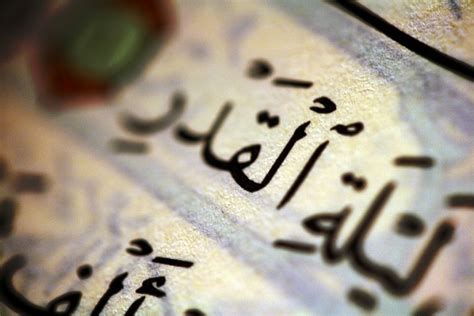 لَيۡلَةُ ٱلۡقَدۡرِ
أَلۡفِ